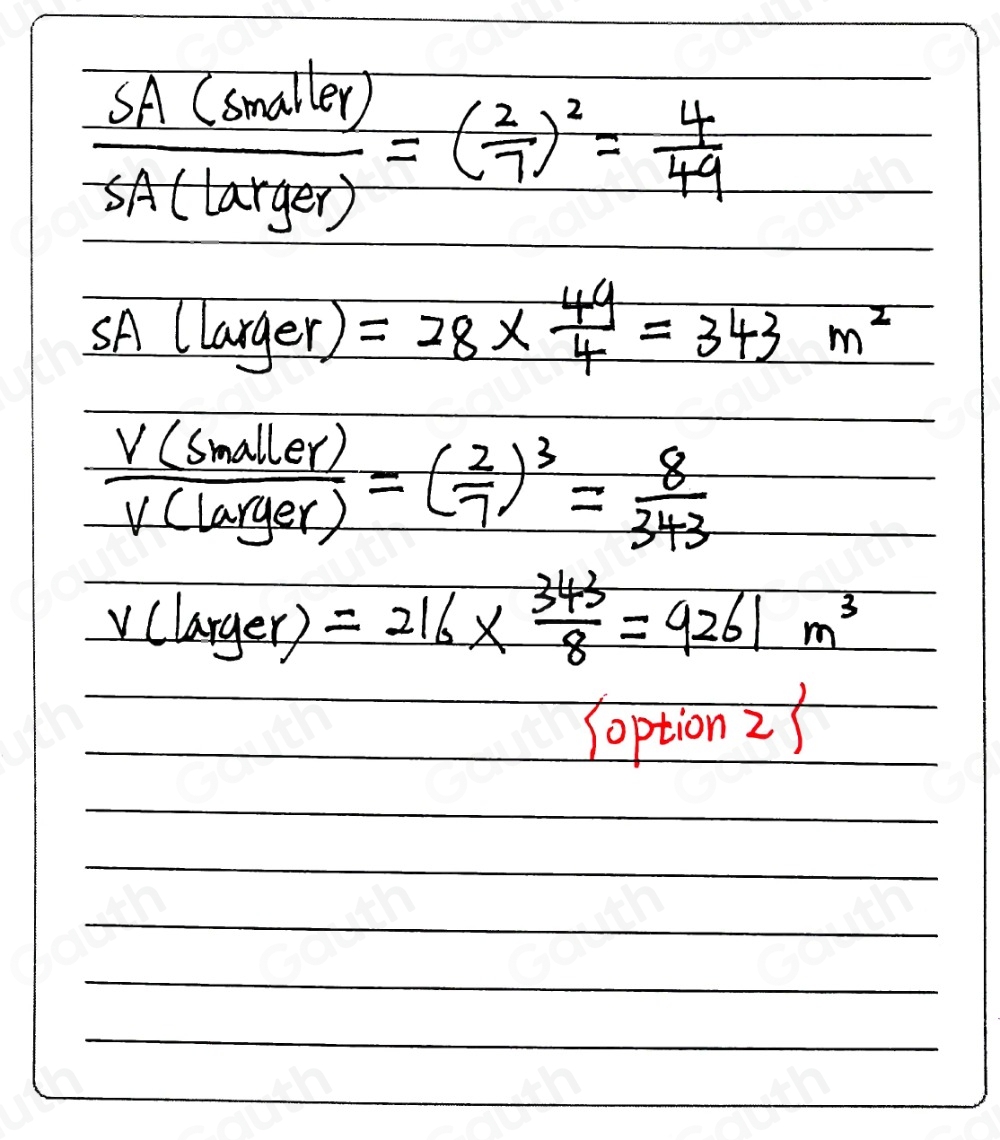 SA (smaller) / SA (larger) = (2/7)² = 4/49
SA (larger) = 28 × 49/4 = 343 m²
V (smaller) / V (larger) = (2/7)³ = 8/343
V (larger) = 216 × 343/8 = 9261 m³
{option 2}
Gauth